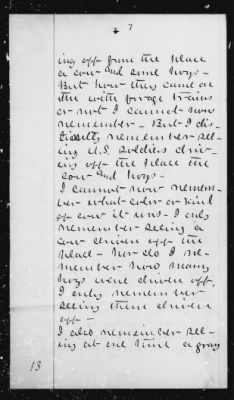 7
ing off from the place
a cow and some hogs -
But how they came on
the with forage trains
or not I cannot now
remember - But I dis-
tinctly remember see-
ing U.S. soldiers driv-
ing off the place the
cow and hogs -
I cannot now remem-
ber what color or kind
of cow it was - I only
remember seeing a
cow driven off the
place - Nor do I re-
member how many
hogs were driven off,
I only remember
seeing them driven
off -
I also remember see-
ing at one time a gray
13